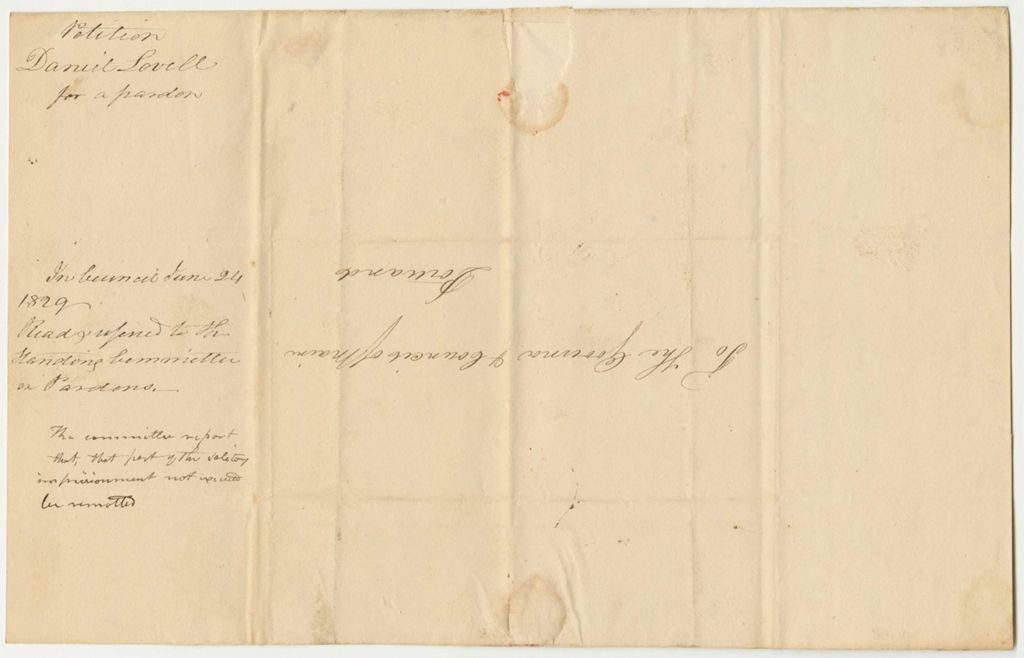 Petition
Daniel Lovell
for a pardon
In Council June 24
1829
Read & referred to the
Standing Committee
on Pardons.
The committee report
that, that part of the solitary
imprisonment not executed
be remitted
To The Governor & Council of Main